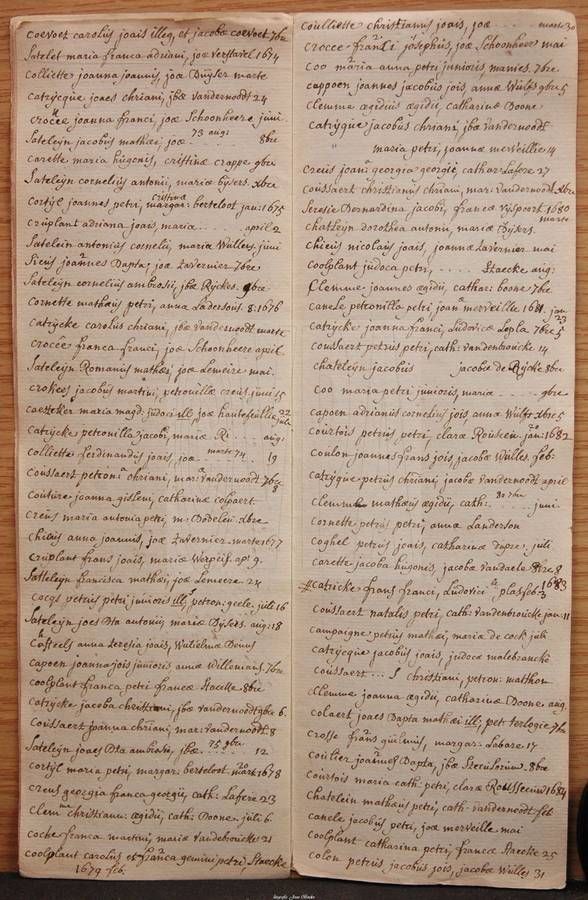 coevoet carolus joais illeg, et jacobæ coevoet 7bre
Satelet maria franca adriani, joæ verstavel 1674
Colliette joanna joannis, joæ Duyser marte
catrycque joaes chriani, jbæ vandernoodt 24
crocée joanna franci, joæ Schoonheere junii
Sateleyn jacobus mathæi, joæ 73 aug: 8bre
carette maria hugonis, cristinæ crappe 9bre
Sateleyn cornelius antonii, mariæ bysers. xbre
cortyl joannes petri, margar: berteloot jan: 1675
cruplant adriana joais, maria . . . . . april 2
Satelein antonius cornelii, maria Wullens, junii
Sicus joannes Bapta, joæ Lavernier 7bre
Sateleyn cornelius ambrosii, jbæ Ryckes. 9bre
Cornette mathæus petri, annaЛандersous 8: 1676
catrycke carolus chriani, jbæ vandernoodt marte
crocée franca franci, joæ Schoonheere april
Sateleyn Romanus mathæi, joæ Lemeire mai
crokees jacobus martini, petronillæ creus junii 15
caesteker maria magd: judoci ill, joæ hautefeuille 22 july
catrycke petronilla jacobi mariæ R. . . . aug:
colliette ferdinandus joais, joæ . . . marte 74 19
coussaert petrona chriani, mar: vandernoodt 7bre 8
couture joanna gisleni, catharinæ colpaert
creus maria antonia petri, m: Bodelen xbre
chieus anna joannis, joæ Lavernier. marte 1677
cruplant frans joais, mariæ Werpeif. ap: 9.
Satteleyn francisca mathæi, joæ Lemeere 24
cocqs petrus petri junioris ills, petron: geele. juli 16
Sateleyn joes Bta antonii, mariæ Dysers. aug: 18
Casteels anna Teresia joais, Wulielmæ Denus
capoen joanna jois junioris annæ Willemans. 7bre
coolplant franca petri franceæ Staecke 8bre
Catrycke jacoba christiani, jbæ vandernoodt 9bre 6.
coussaert joanna chriani, mar: vandernoodt. 8
Sateleyn joaes Bta ambrosii, jbæ . 75 9bre . 12
cortyl maria petri, margar: berteloot mart: 1678
creus georgia franca georgii, cath: Lafere 23
Clem christianus ægidii, cath: Boone, juli 6
coche franca martini, mariæ vandeboutte 21
coolplant carolus et franca gemini petri, Staecke
1679 feb.
Coulliette christianus joais, joæ . . . . marte 30
crocee franci josephus, joæ Schoonheer mai
coo maria anna petri junioris, mariæs. 7bre
cappoen joannes jacobus jois, annæ Wulfs 9bre 5
clemme ægidius ægidii, catharinæ Boone
catrycque jacobus chriani, jbæ vandernoodt
" maria petri, joannæ merveillie 4
creus joans georgia georgii, cathar: Lafere 27
coussaert christianus chriani, mar: vandernoodt xbre
Seresie Bernardina jacobi, franceæ Vysport 1680
chatleyn dorothea antonii, mariæ Bysers. marte
chieus nicolaus joais, joannæ Lavernier mai
coolplant judoca petri, . . . . Staecke aug:
Clemme joannes ægidii, cathar: boone 7bre
canele petronilla petri joan merveille 1681 jan 23
catrycke joanna franci, Ludovicæ Lepla 7bre 5
coussaert petrus petri, cath: vandenbroucke 14
chateleyn jacobus jacobæ de Rycke 8bre
coo maria petri junioris, maria . . . . . 9bre
capoen adrianus cornelius jois, anna Wulfs xbre 5
courtois petrus petri, claræ Rousseeu. jan: 1682
coulon joannes frans jois, jacobæ Wulles. feb:
catrycque petrus chriani, jacobæ vandernoodt april
clemme mathæus ægidii, cath: . 80 7bre . . junii
cornette petrus petri, annæ Landerson
Coghel petrus joais, catharinæ Dupre: juli
carette jacoba hugonis, jacobæ vandaele 8bre 8
#catricke frans franci, Ludovici la plas feb. 3 1683
coussaert natalis petri, cath: vandenbroucke jan: 11
campaigne petrus mathæi, maria de cock juli
catrycque jacobus joais, judocæ malebrancke
coussaert . . . s christiani, petron: matthon
Clemme joanna ægidii, catharinæ Boone aug.
colaert joaes Bapta mathæi ill, pet terlogie 7bre
crosse frans guilmus, margar: Labare. 17
coulier joannes Bapta, jbæ Steculorum. 8bre
courtois maria cath: petri, claræ Rousseeuw 1684
chatelein mathæus petri, cath: vandernoodt feb
canele jacobus petri, joæ merveille mai
coolplant catharina petri, franceæ Staecke 25
colon petrus jacobus jois, jacobæ Wulles 31